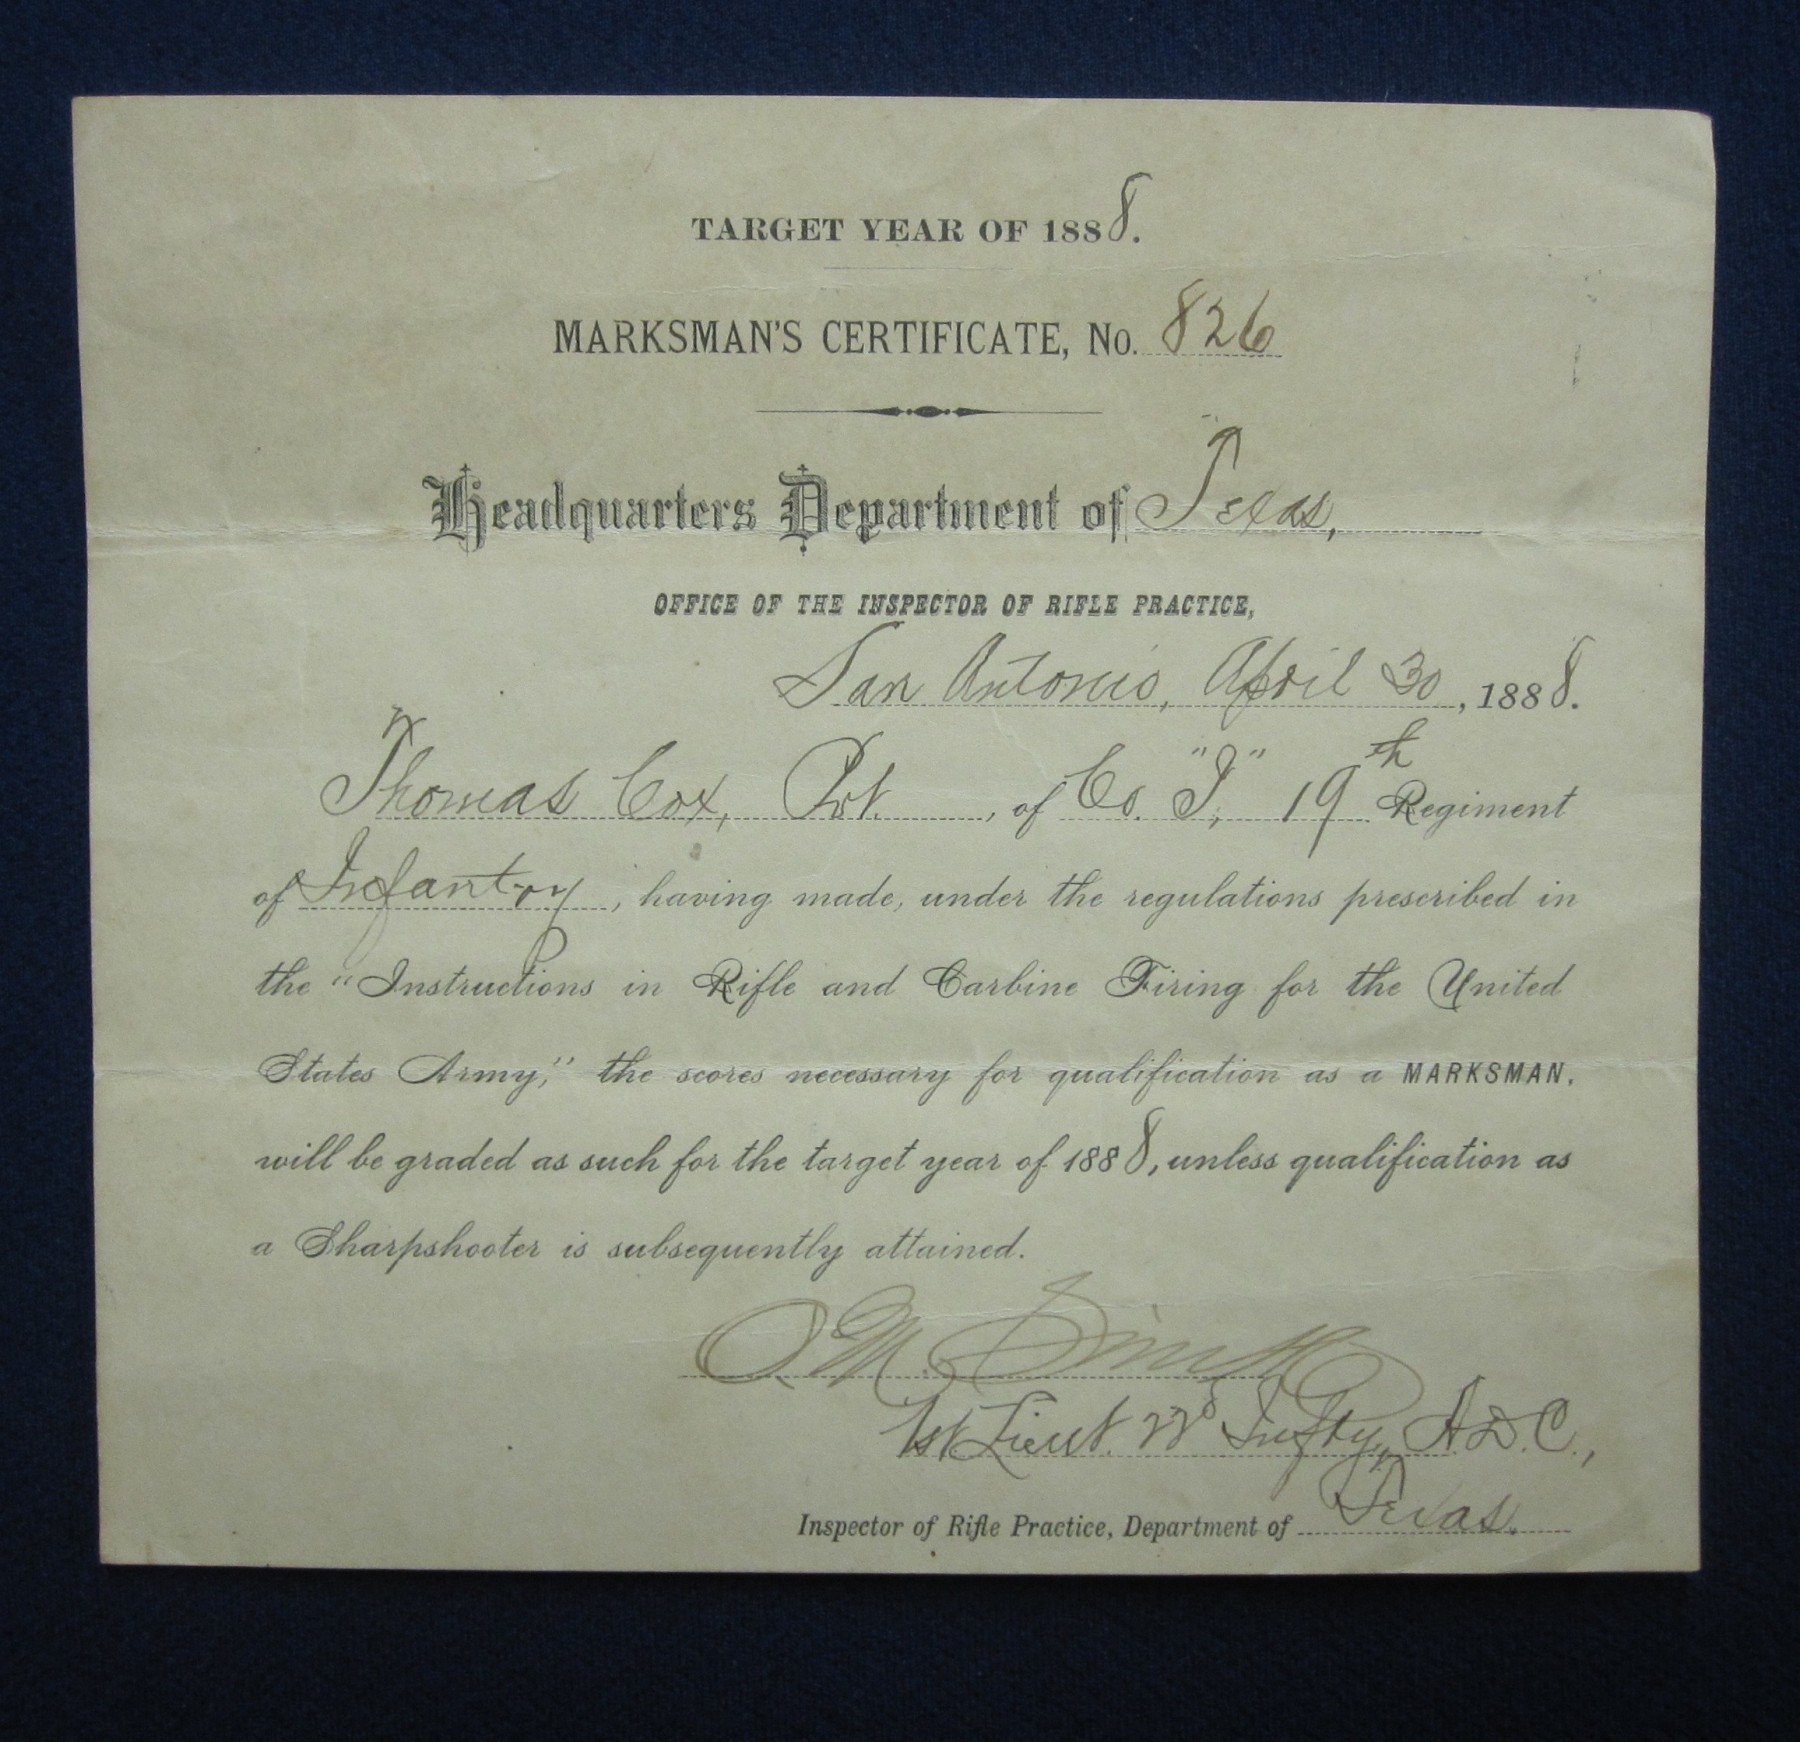 TARGET YEAR OF 1888.
MARKSMAN'S CERTIFICATE, No. 826
Headquarters Department of Texas,
OFFICE OF THE INSPECTOR OF RIFLE PRACTICE,
San Antonio, April 30, 1888.
Thomas Cox, Pvt., of Co. "I", 19th Regiment
of Infantry, having made, under the regulations prescribed in
the "Instructions in Rifle and Carbine Firing for the United
States Army," the scores necessary for qualification as a MARKSMAN,
will be graded as such for the target year of 1888, unless qualification as
a Sharpshooter is subsequently attained.
O.M. Smith
1st Lieut. 22d Infty., A.D.C.,
Inspector of Rifle Practice, Department of Texas.